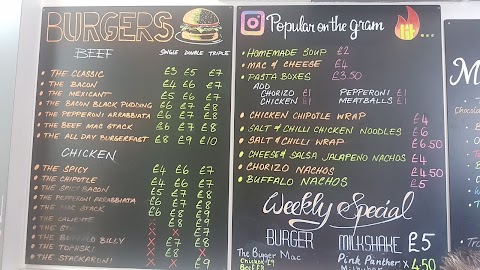 BURGERS
BEEF SINGLE DOUBLE TRIPLE
• THE CLASSIC £3 £5 £7
• THE BACON £4 £6 £7
• THE MEXICANT £5 £6 £7
• THE BACON BLACK PUDDING £6 £7 £8
• THE PEPPERONI ARRABBIATA £6 £7 £8
• THE BEEF MAC STACK £6 £7 £8
• THE ALL DAY BURGERFAST £8 £9 £10
CHICKEN
• THE SPICY £4 £6 £7
• THE CHIPOTLE £4 £6 £7
• THE SPICY BACON £5 £6 £7
• THE PEPPERONI ARRABBIATA £6 £7 £8
• THE MAC STACK £6 £7 £8
• THE CALIENTE
• THE
• THE BUFFALO BILLY
• THE TOPHSKI
• THE STACKARONI X X £9
Popular on the gram
• HOMEMADE SOUP £2
• MAC & CHEESE £4
• PASTA BOXES £3.50
ADD
CHORIZO £1 PEPPERONI £1
CHICKEN £1 MEATBALLS £1
• CHICKEN CHIPOTLE WRAP £4
• SALT & CHILLI CHICKEN NOODLES £6
• SALT & CHILLI WRAP £6.50
• CHEESE & SALSA JALAPENO NACHOS £4
• CHORIZO NACHOS £4.50
• BUFFALO NACHOS £5
Weekly Special
BURGER MILKSHAKE £5
The Bigger Mac Pink Panther X 4.50
Chicken £9
Beef £8
M